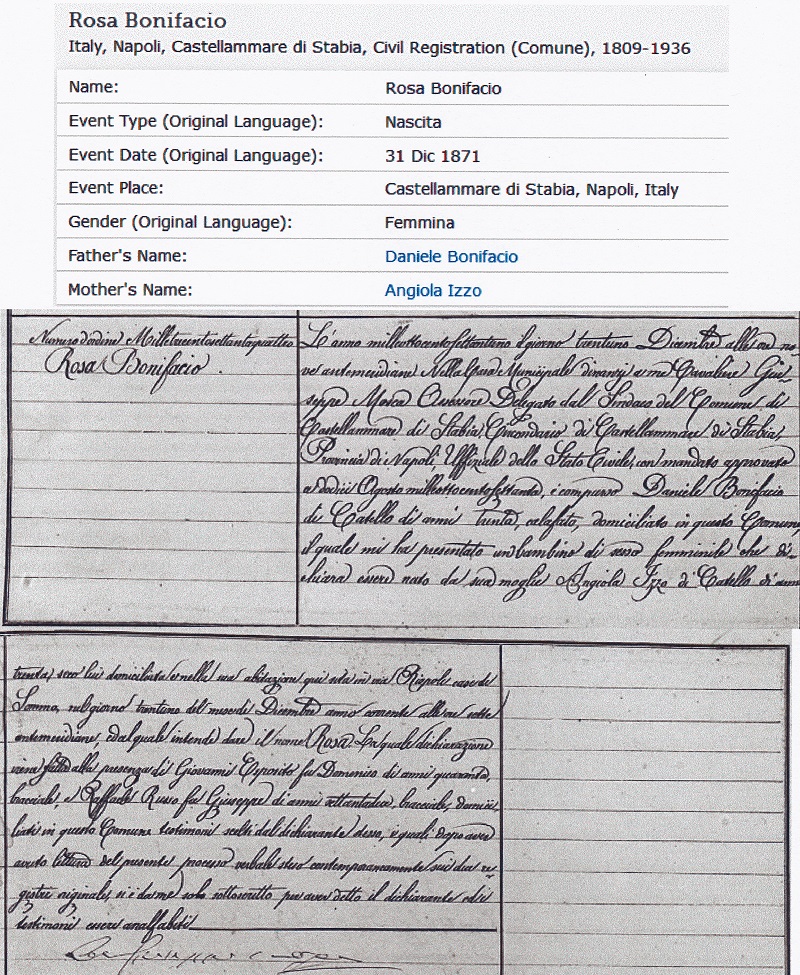 Rosa Bonifacio
Italy, Napoli, Castellammare di Stabia, Civil Registration (Comune), 1809-1936
Name: Rosa Bonifacio
Event Type (Original Language): Nascita
Event Date (Original Language): 31 Dic 1871
Event Place: Castellammare di Stabia, Napoli, Italy
Gender (Original Language): Femmina
Father's Name: Daniele Bonifacio
Mother's Name: Angiola Izzo
Numero d'ordine Milletrecentosettantaquattro
Rosa Bonifacio.
L'anno milleottocentosettantuno il giorno trentuno Dicembre alle ore no=
ve antemeridiane Nella Casa Municipale dinanzi a me Cavaliere Giu=
seppe Mosca Assessore Delegato dal Sindaco del Comune di
Castellammare di Stabia, Circondario di Castellammare di Stabia,
Provincia di Napoli, Uffiziale dello Stato Civile, con mandato approvato
a dodici Agosto milleottocentosettanta, è comparso Daniele Bonifacio
di Catello di anni trenta, calafato, domiciliato in questo Comune,
il quale mi ha presentato un bambino di sesso femminile che di=
chiara essere nato da sua moglie Angiola Izzo di Catello di anni
trenta, seco lui domiciliata e nella sua abitazione qui sita in via Rispoli case di
Somma, nel giorno trentuno del mese di Dicembre anno corrente alle ore sette
antemeridiane, ed al quale intende dare il nome Rosa La quale dichiarazione
viene fatta alla presenza di Giovanni Esposito fu Domenico di anni quaranta,
bracciale, e Raffaele Russo fu Giuseppe di anni settantadue, bracciale, domici=
liati in questo Comune testimoni scelti dal dichiarante stesso, i quali dopo aver
avuto lettura del presente processo verbale steso contemporaneamente sui due re=
gistri originali, si è da me solo sottoscritto per aver detto il dichiarante ed i
testimoni essere analfabeti